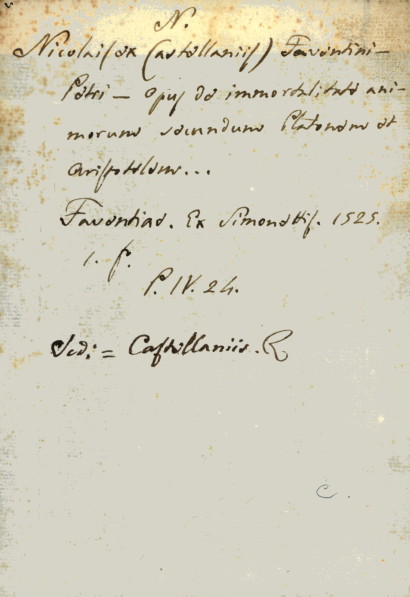 N.
Nicolai (ex Castellaniis) Faventini -
Petri - Opus de immortalitate ani-
morum secundum Platonem et
Aristotelem...
Faventiae. Ex Simonettis. 1525.
1. f.
P. IV. 24.
Castellaniis. R
C.